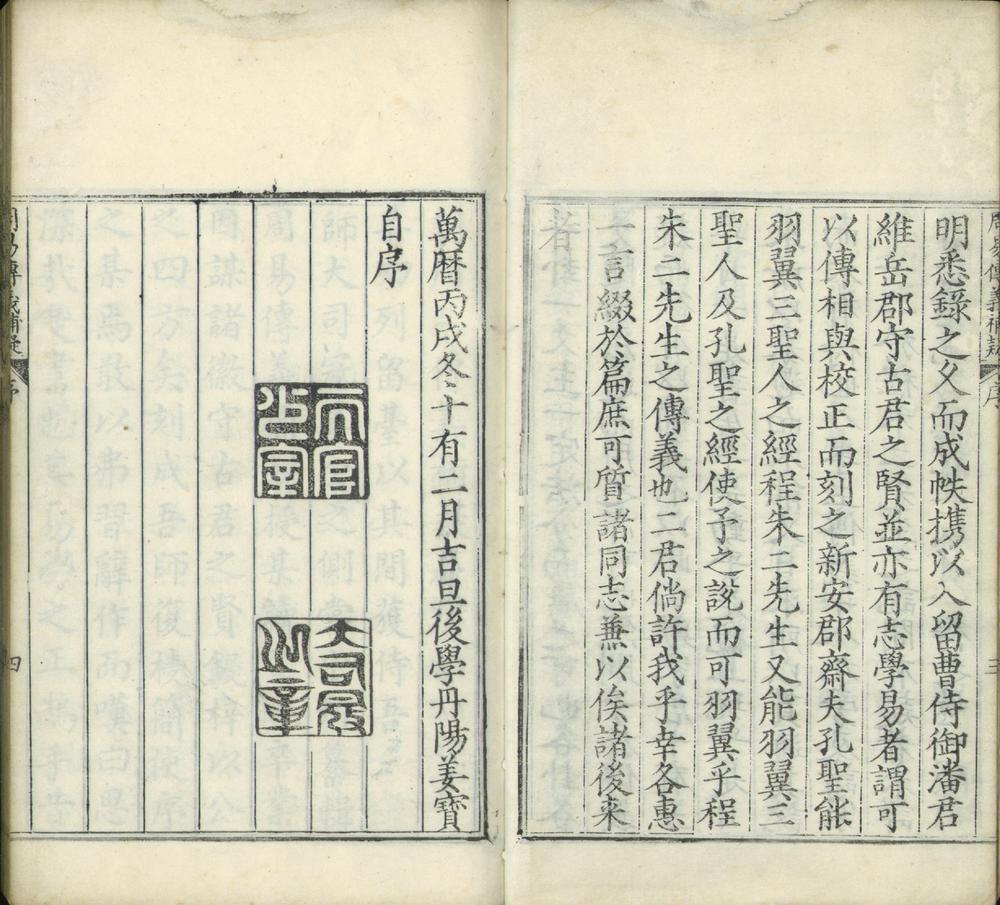 周易傳義補疑
序
三
明悉錄之久而成帙携以入留曹侍御潘君
維岳郡守古君之賢並亦有志學易者謂可
以傳相與校正而刻之新安郡齋夫孔聖能
羽翼三聖人之經程朱二先生又能羽翼三
聖人及孔聖之經使予之說而可羽翼乎程
朱二先生之傳義也二君倘許我乎幸各惠
一言綴於篇庶可質諸同志兼以俟諸後来
者
萬曆丙戌冬十有二月吉旦後學丹陽姜寶
自序
天官
之章
大司寇
之章
周易傳義補疑
序
四